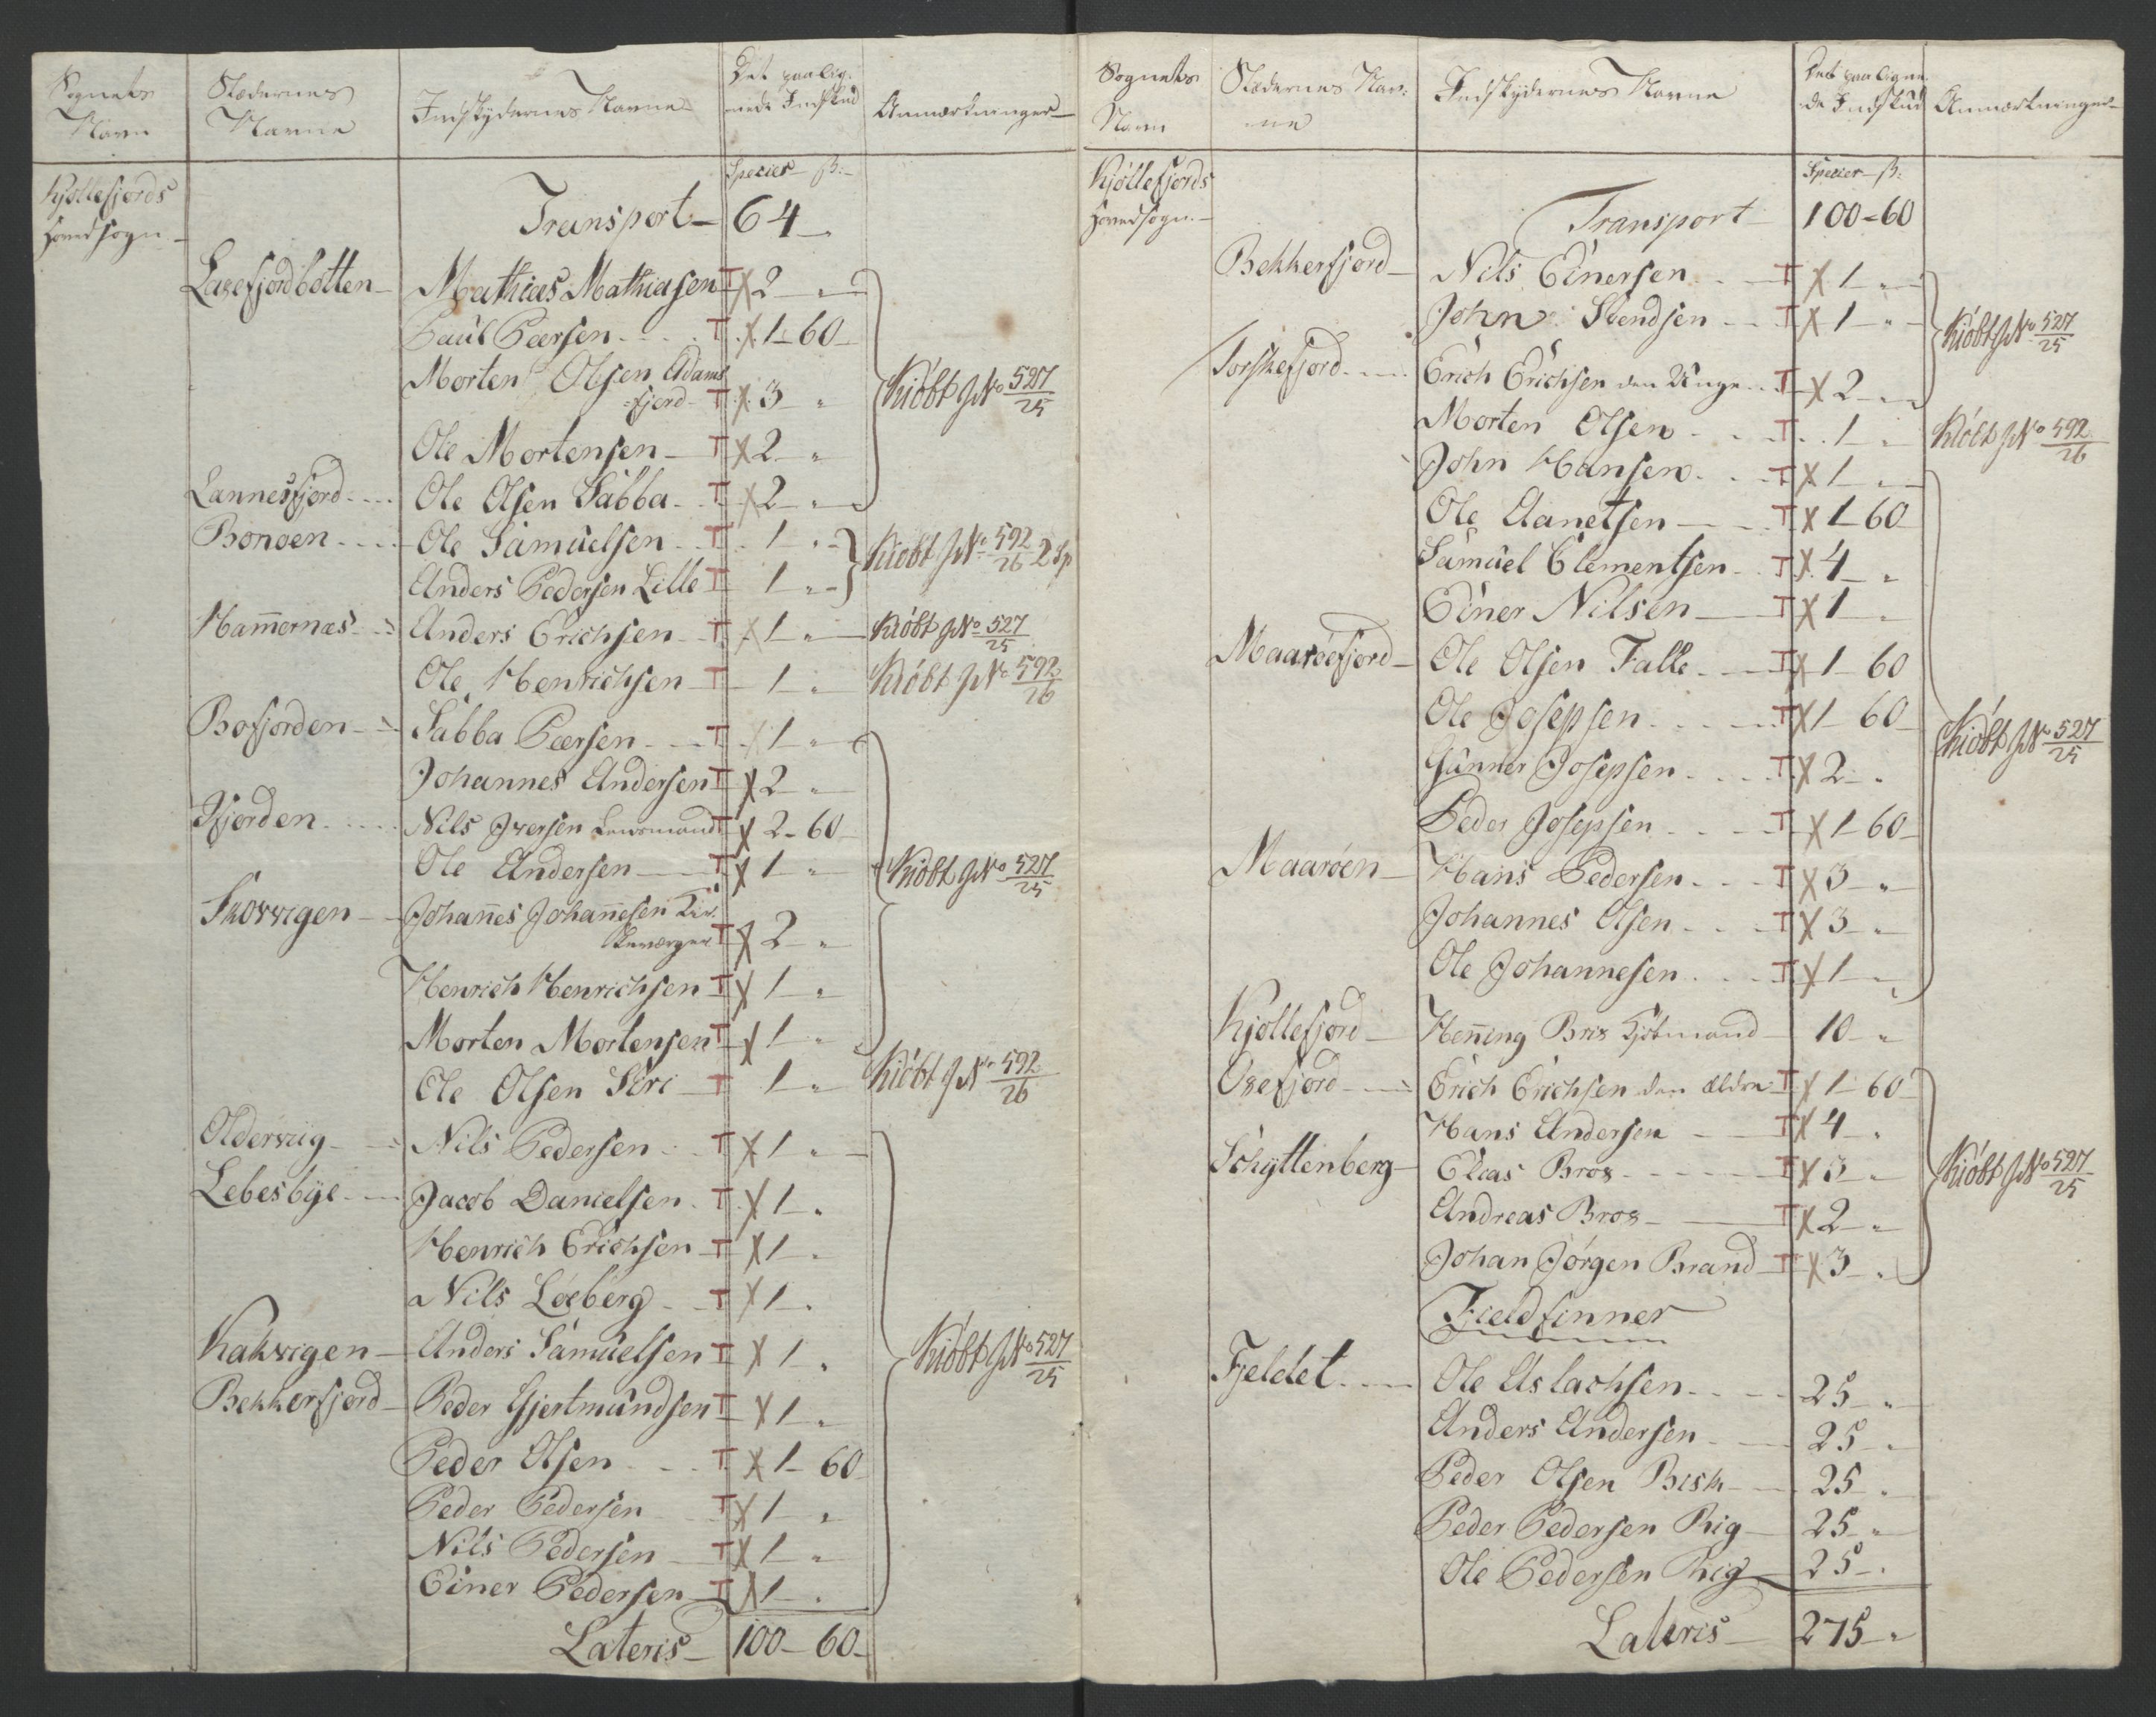 Sognets Navn | Stædernes Navne | Indskydernes Navne | Det paalignede Indskud | Anmærkninger
Kjøllefjords Hovedsogn | Species ß.
Transport 64
Laxefjordbotten Mathias Mathiasen T X 2 "
Paul Peersen T X 1 60
Morten Olsen Adamsfjord T X 3 " Kiøbt J No 527/25
Ole Mortensen T X 2 "
Lannesfjord Ole Olsen Sabba T X 2 "
Bonøen Ole Samuelsen T 1 " Kiøbt J No 592/26 2 Sp
Anders Pedersen Lille T 1 "
Ham̄ernæs Anders Erichsen T X 1 " Kiøbt J No 527/25
Ole Henrichsen T 1 " Kiøbt J No 592/26
Bofjorden Sabba Peersen T X 1 "
Johannes Andersen T X 2 "
Ifjorden Nils Iversen Lensmand T X 2 60
Ole Andersen T X 1 " Kiøbt J No 527/25
Skovvigen Johan̄es Johan̄esen Kirkeværger T X 2 "
Henrich Henrichsen T X 1 "
Morten Mortensen T X 1 "
Ole Olsen Siri T 1 " Kiøbt J No 592/26
Oldervig Nils Pedersen T X 1 "
Lebesbye Jacob Danielsen T X 1 "
Henrich Erichsen T X 1 "
Nils Løeberg T X 1 "
Kakvigen Anders Samuelsen T X 1 " Kiøbt J No 527/25
Bekkerfjord Peder Gjertmundsen T X 1 "
Peder Olsen T X 1 60
Peder Pedersen T X 1 "
Nils Pedersen T X 1 "
Einer Pedersen T X 1 "
Lateris 100 60
Sognets Navn | Stædernes Navne | Indskydernes Navne | Det paalignede Indskud | Anmærkninger
Kjøllefjords Hovedsogn | Species ß.
Transport 100 60
Bekkerfjord Nils Einersen T X 1 "
John Svendsen T X 1 " Kiøbt J No 527/25
Torskefjord Erich Erichsen den Unge T X 2 "
Morten Olsen T 1 " Kiøbt J No 592/26
John Hansen T X 1 "
Ole Aanetsen T X 1 60
Samuel Clementsen T X 4 "
Einer Nilsen T X 1 "
Maarøefjord Ole Olsen Falle T X 1 60
Ole Josepsen T X 1 60
Gunner Josepsen T X 2 " Kiøbt J No 527/25
Peder Josepsen T X 1 60
Maarøen Hans Pedersen T X 3 "
Johannes Olsen T X 3 "
Ole Johannesen T X 1 "
Kjøllefjord Hen̄ing Brix Kjøbmand 10 "
Oxefjord Erich Erichsen den ældre T X 1 60
Hans Andersen T X 4 "
Schyttenberg Elias Brox T X 3 " Kiøbt J No 527/25
Andreas Brox T X 2 "
Johan Jørgen Brand T X 3 "
Fieldfinner
Fjeldet Ole Aslachsen 25 "
Anders Andersen 25 "
Peder Olsen Bisk 25 "
Peder Pedersen Rig 25 "
Ole Pedersen Rig 25 "
Lateris 275 "